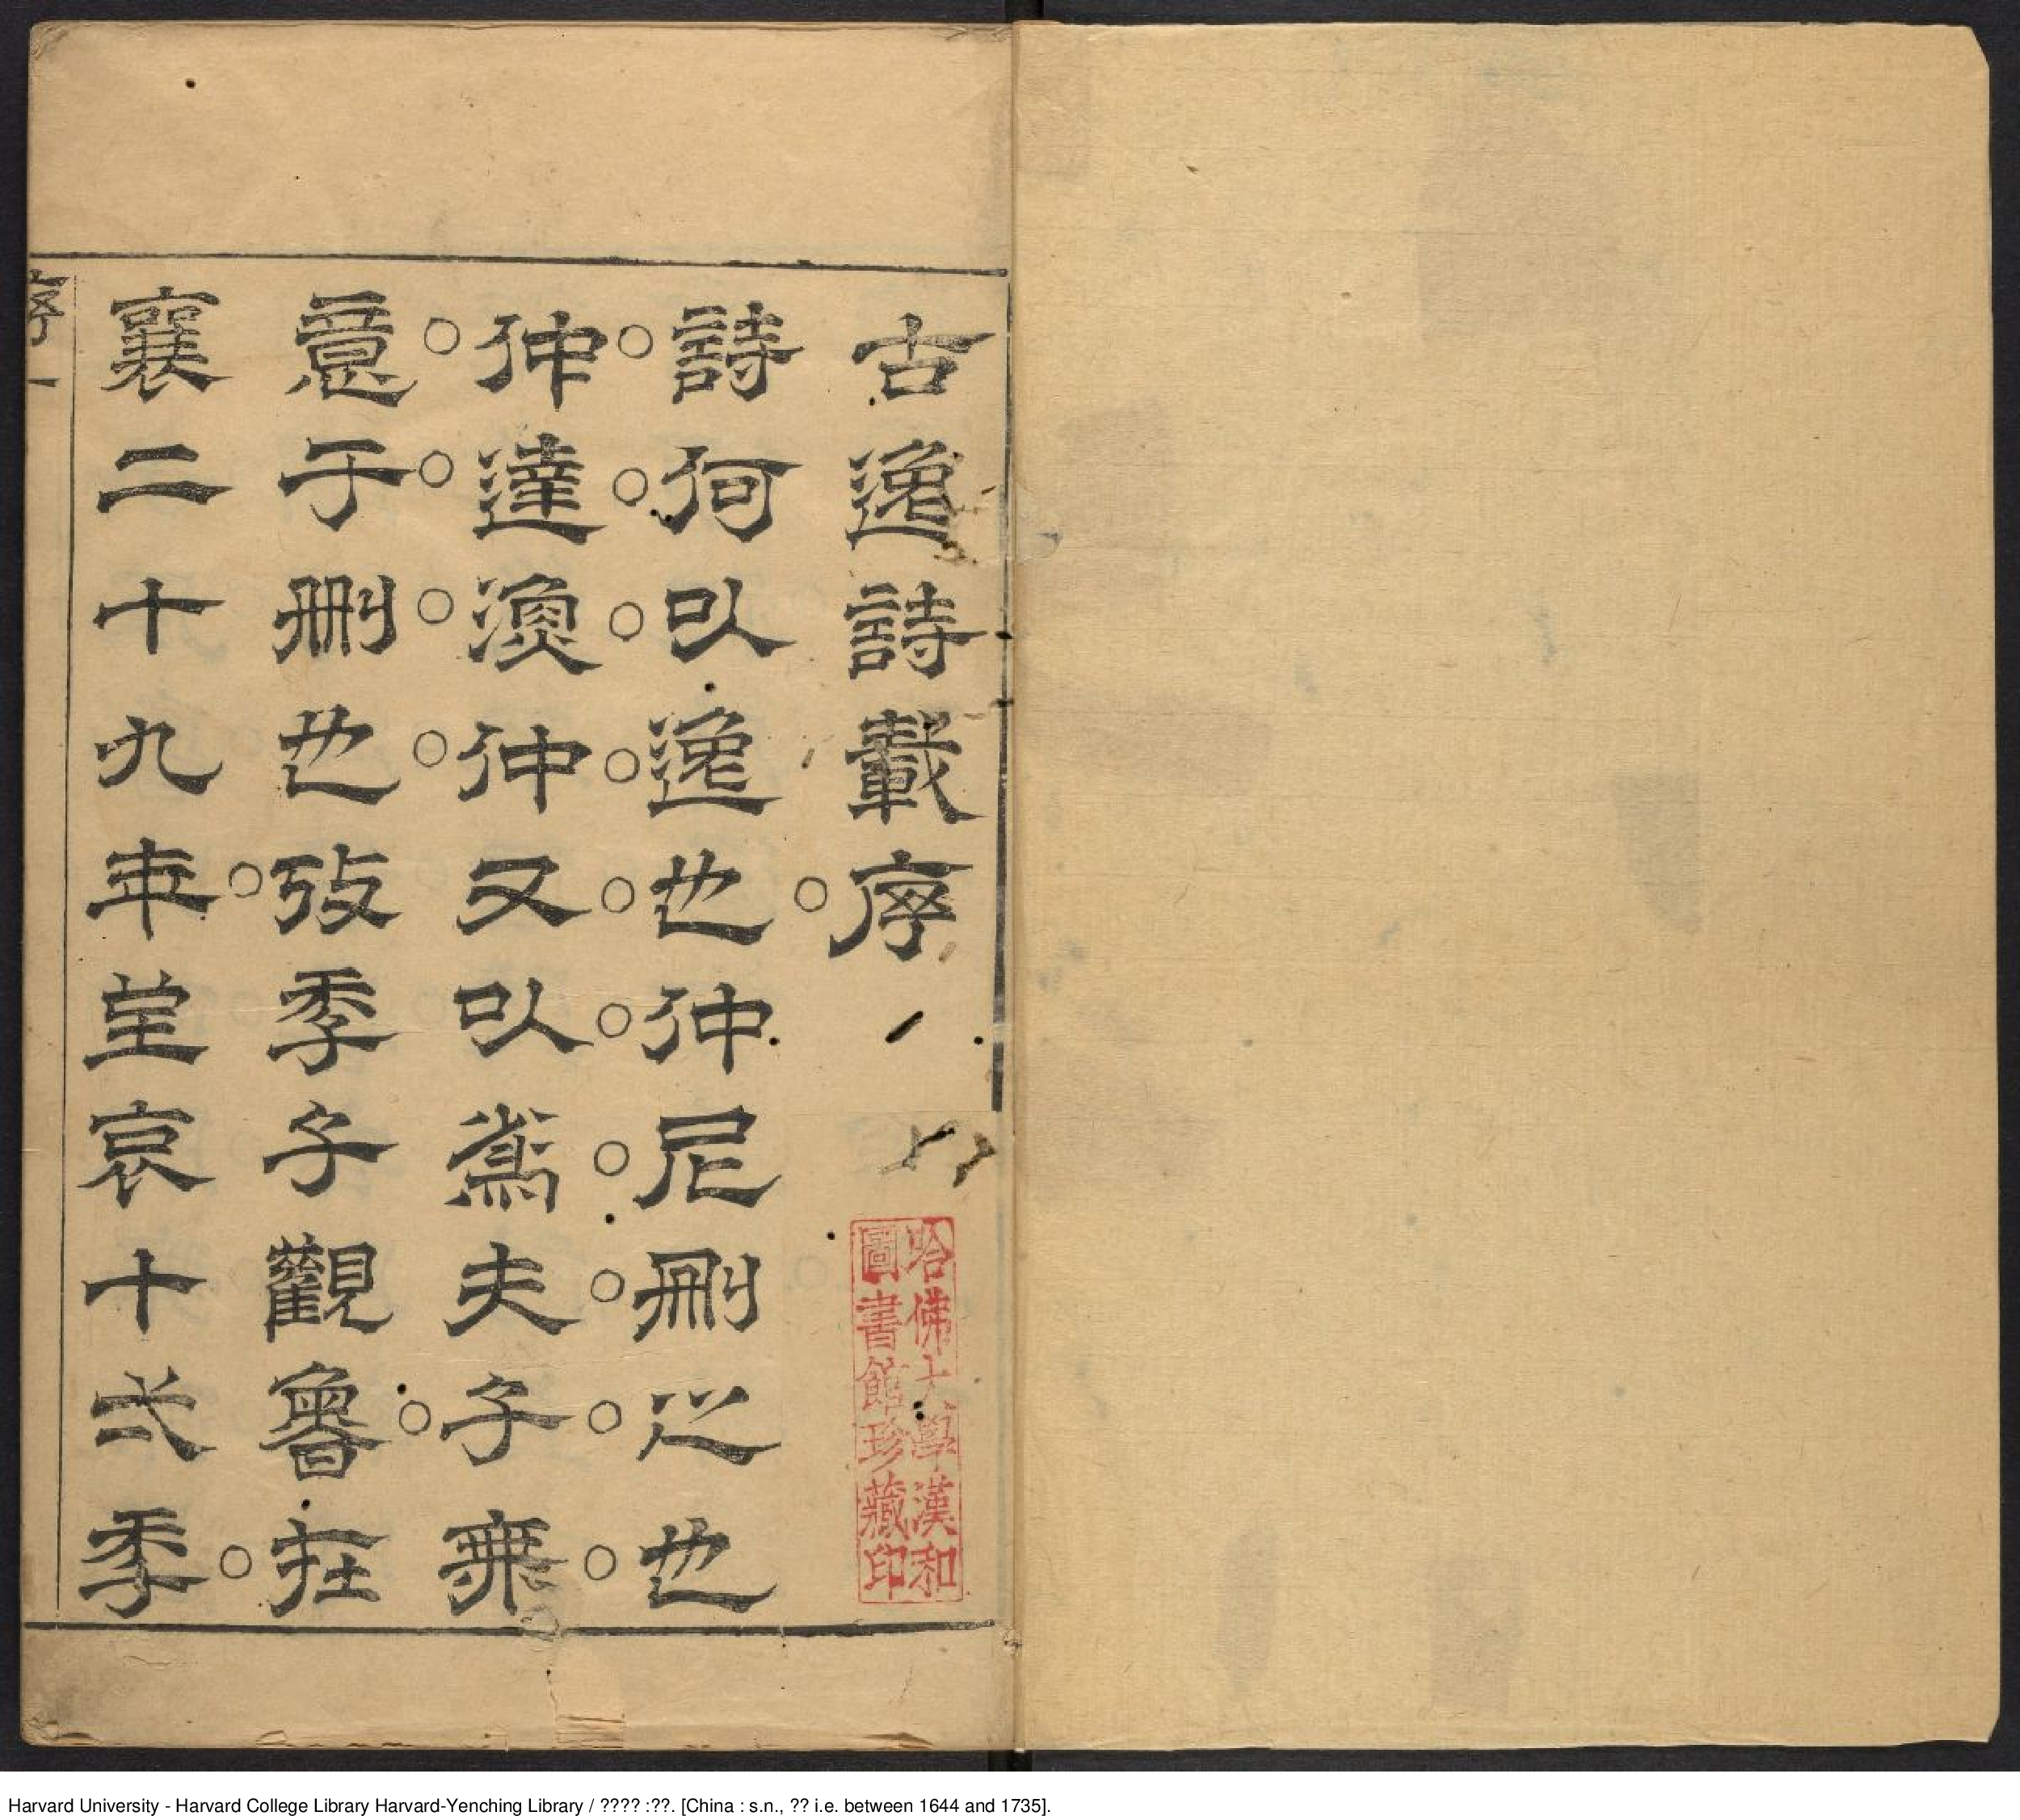 古逸詩載序
詩何以逸也仲尼刪之也
仲達渙仲又以為夫子無
意于刪也攷季子觀魯在
襄二十九年望哀十式季
序 一
哈佛大學漢和
圖書館珍藏印
Harvard University - Harvard College Library Harvard-Yenching Library / ???? :??. [China : s.n., ?? i.e. between 1644 and 1735].